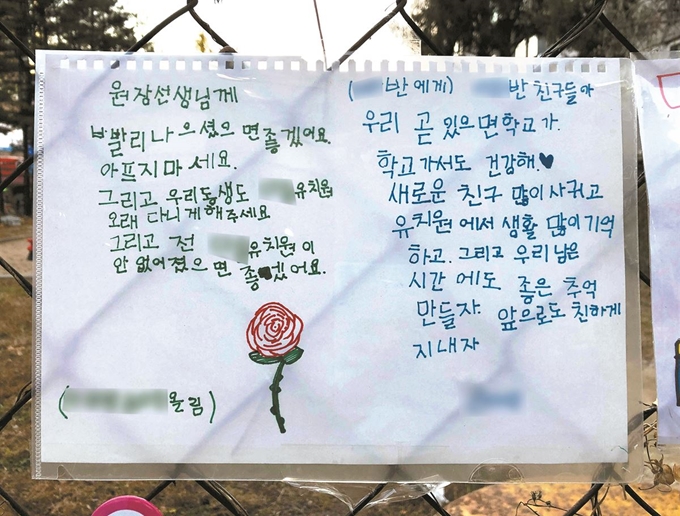 원장선생님께
빨리 나으셨으면 좋겠어요.
아프지마세요.
그리고 우리동생도 유치원
오래 다니게해주세요
그리고 전 유치원이
안 없어졌으면 좋겠어요.
( 올림)
( 반에게) 반 친구들아
우리 곧 있으면학교가.
학교가서도 건강해.♥
새로운 친구 많이 사귀고
유치원에서 생활 많이기억
하고. 그리고 우리 남은
시간에도 좋은 추억
만들자. 앞으로도 친하게
지내자